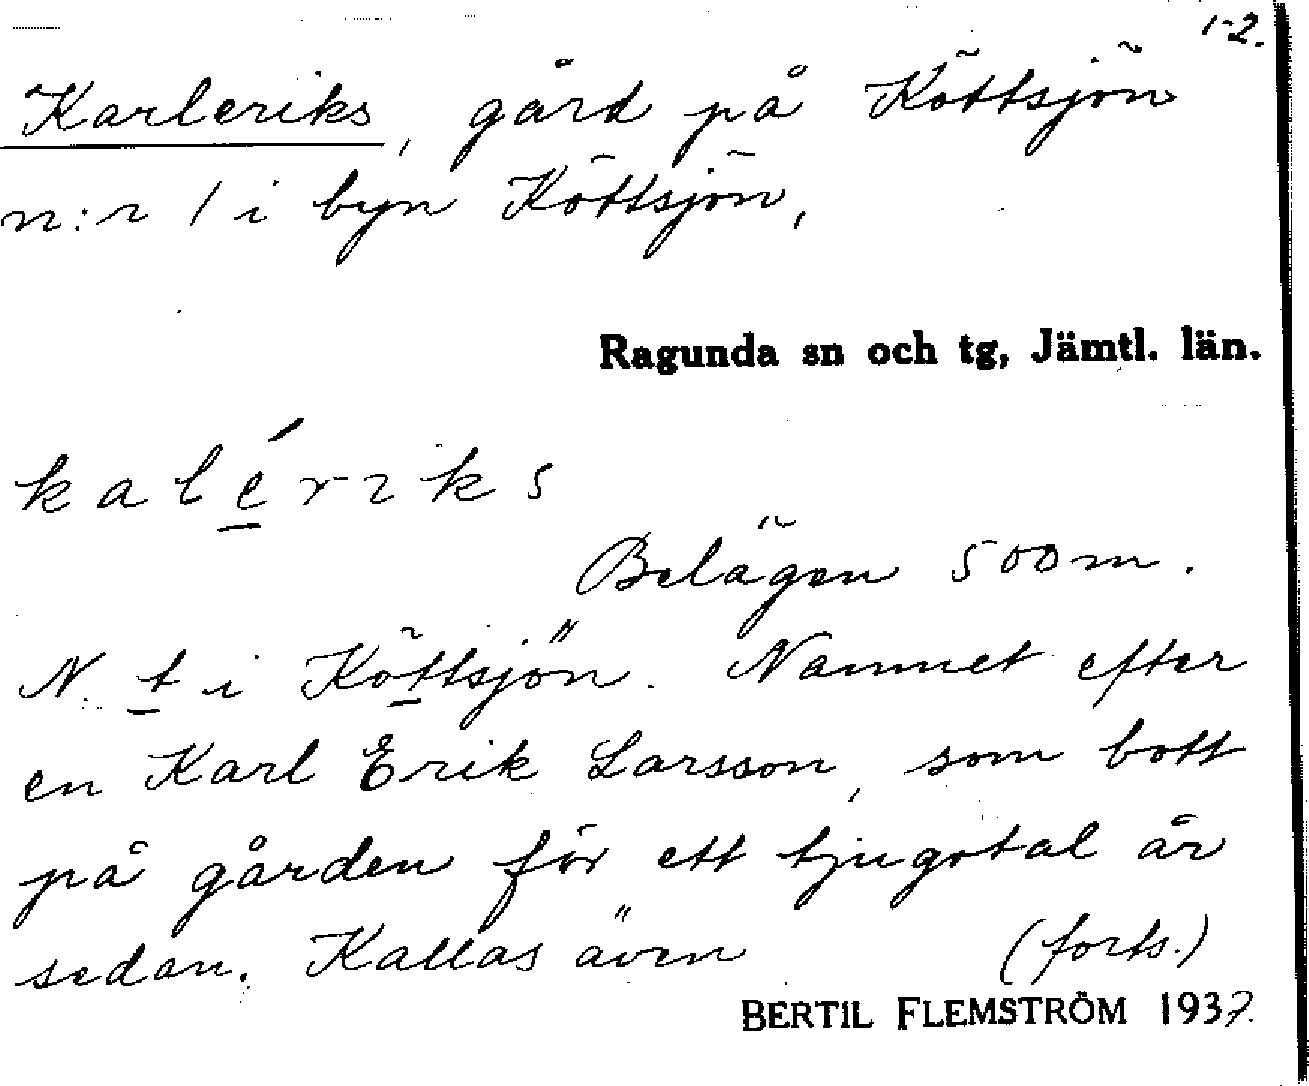 1-2.
Karleriks, gård på Köttsjön
n:r 1 i byn Köttsjön,
Ragunda sn och tg, Jämtl. län.
kalériks
Belägen 500 m.
N. t i Köttsjön. Namnet efter
en Karl Erik Larsson, som bott
på gården för ett tjugotal år
sedan. Kallas även (forts.)
BERTIL FLEMSTRÖM 1937.